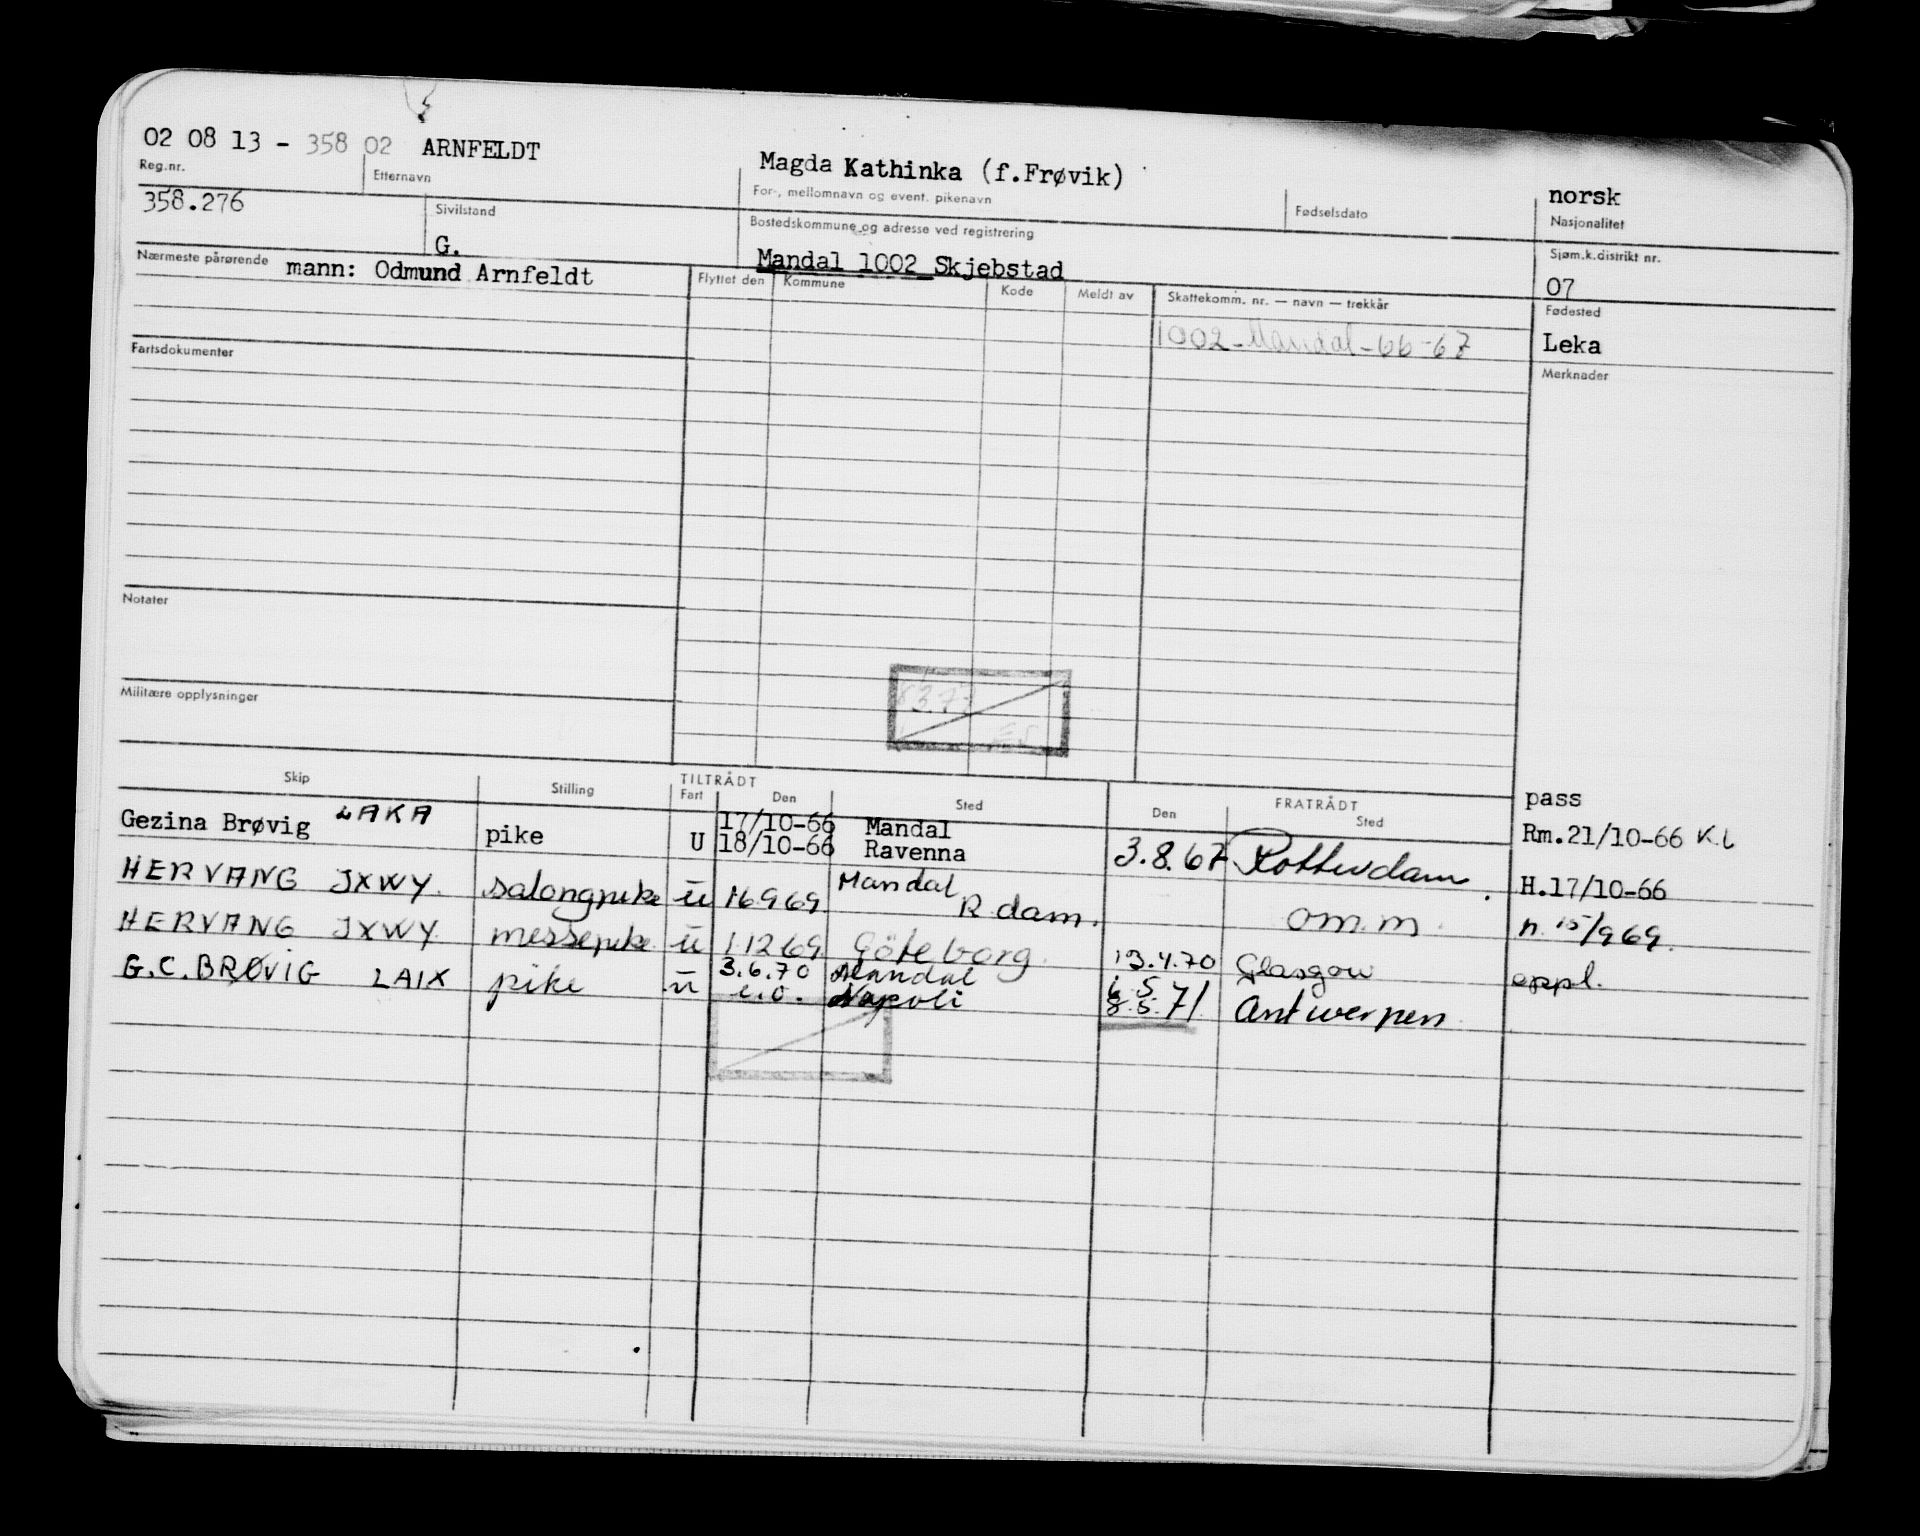 02 08 13 - 358 02 ARNFELDT Magda Kathinka (f.Frøvik) norsk
Reg.nr. Etternavn For-, mellomnavn og event. pikenavn Fødselsdato Nasjonalitet
358.276 Sivilstand G. Bostedskommune og adresse ved registrering Sjøm.k.distrikt nr.
Mandal 1002 Skjebstad 07
Nærmeste pårørende mann: Odmund Arnfeldt Flyttet den Kommune Kode Meldt av Skattekomm. nr. — navn — trekkår Fødested
1002-Mandal-66-67 Leka
Fartsdokumenter Merknader
Notater
Militære opplysninger
Skip Stilling TILTRÅDT FRATRÅDT
Fart Den Sted Den Sted
pass
Gezina Brøvig LAKA pike U 17/10-66 Mandal
18/10-66 Ravenna 3.8.67 Rotterdam Rm.21/10-66 K.L
HERVANG JXWY. salongpike ū 16969 Mandal R.dam. om.m. H.17/10-66
HERVANG JXWY messepike ū 1.1269 Göteborg 13.4.70 Glasgow n. 15/969.
G.C.BRØVIG LAIX pike ū 3.6.70 Mandal oppl.
Napoli 8.5.71 Antwerpen